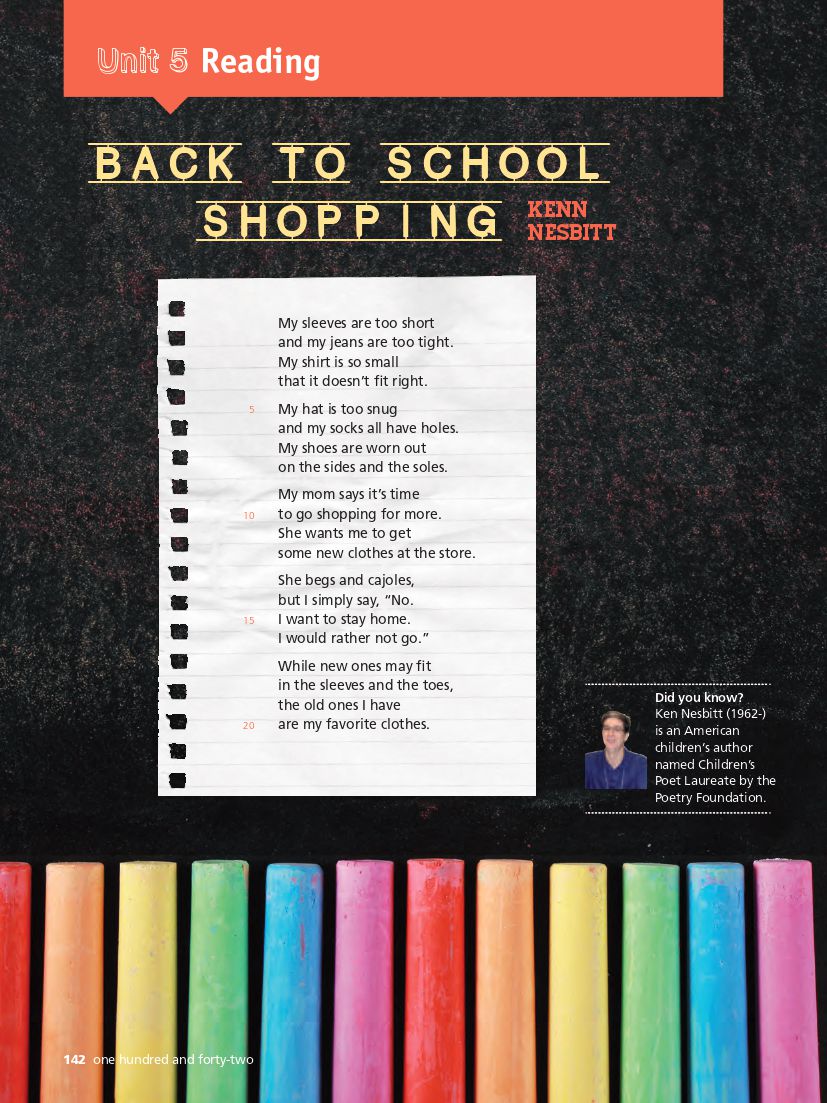 Unit 5 Reading
BACK TO SCHOOL
SHOPPING
KENN
NESBITT
My sleeves are too short
and my jeans are too tight.
My shirt is so small
that it doesn’t fit right.
5 My hat is too snug
and my socks all have holes.
My shoes are worn out
on the sides and the soles.
My mom says it’s time
10 to go shopping for more.
She wants me to get
some new clothes at the store.
She begs and cajoles,
but I simply say, “No.
15 I want to stay home.
I would rather not go.”
While new ones may fit
in the sleeves and the toes,
the old ones I have
20 are my favorite clothes.
Did you know?
Ken Nesbitt (1962-)
is an American
children’s author
named Children’s
Poet Laureate by the
Poetry Foundation.
142 one hundred and forty-two